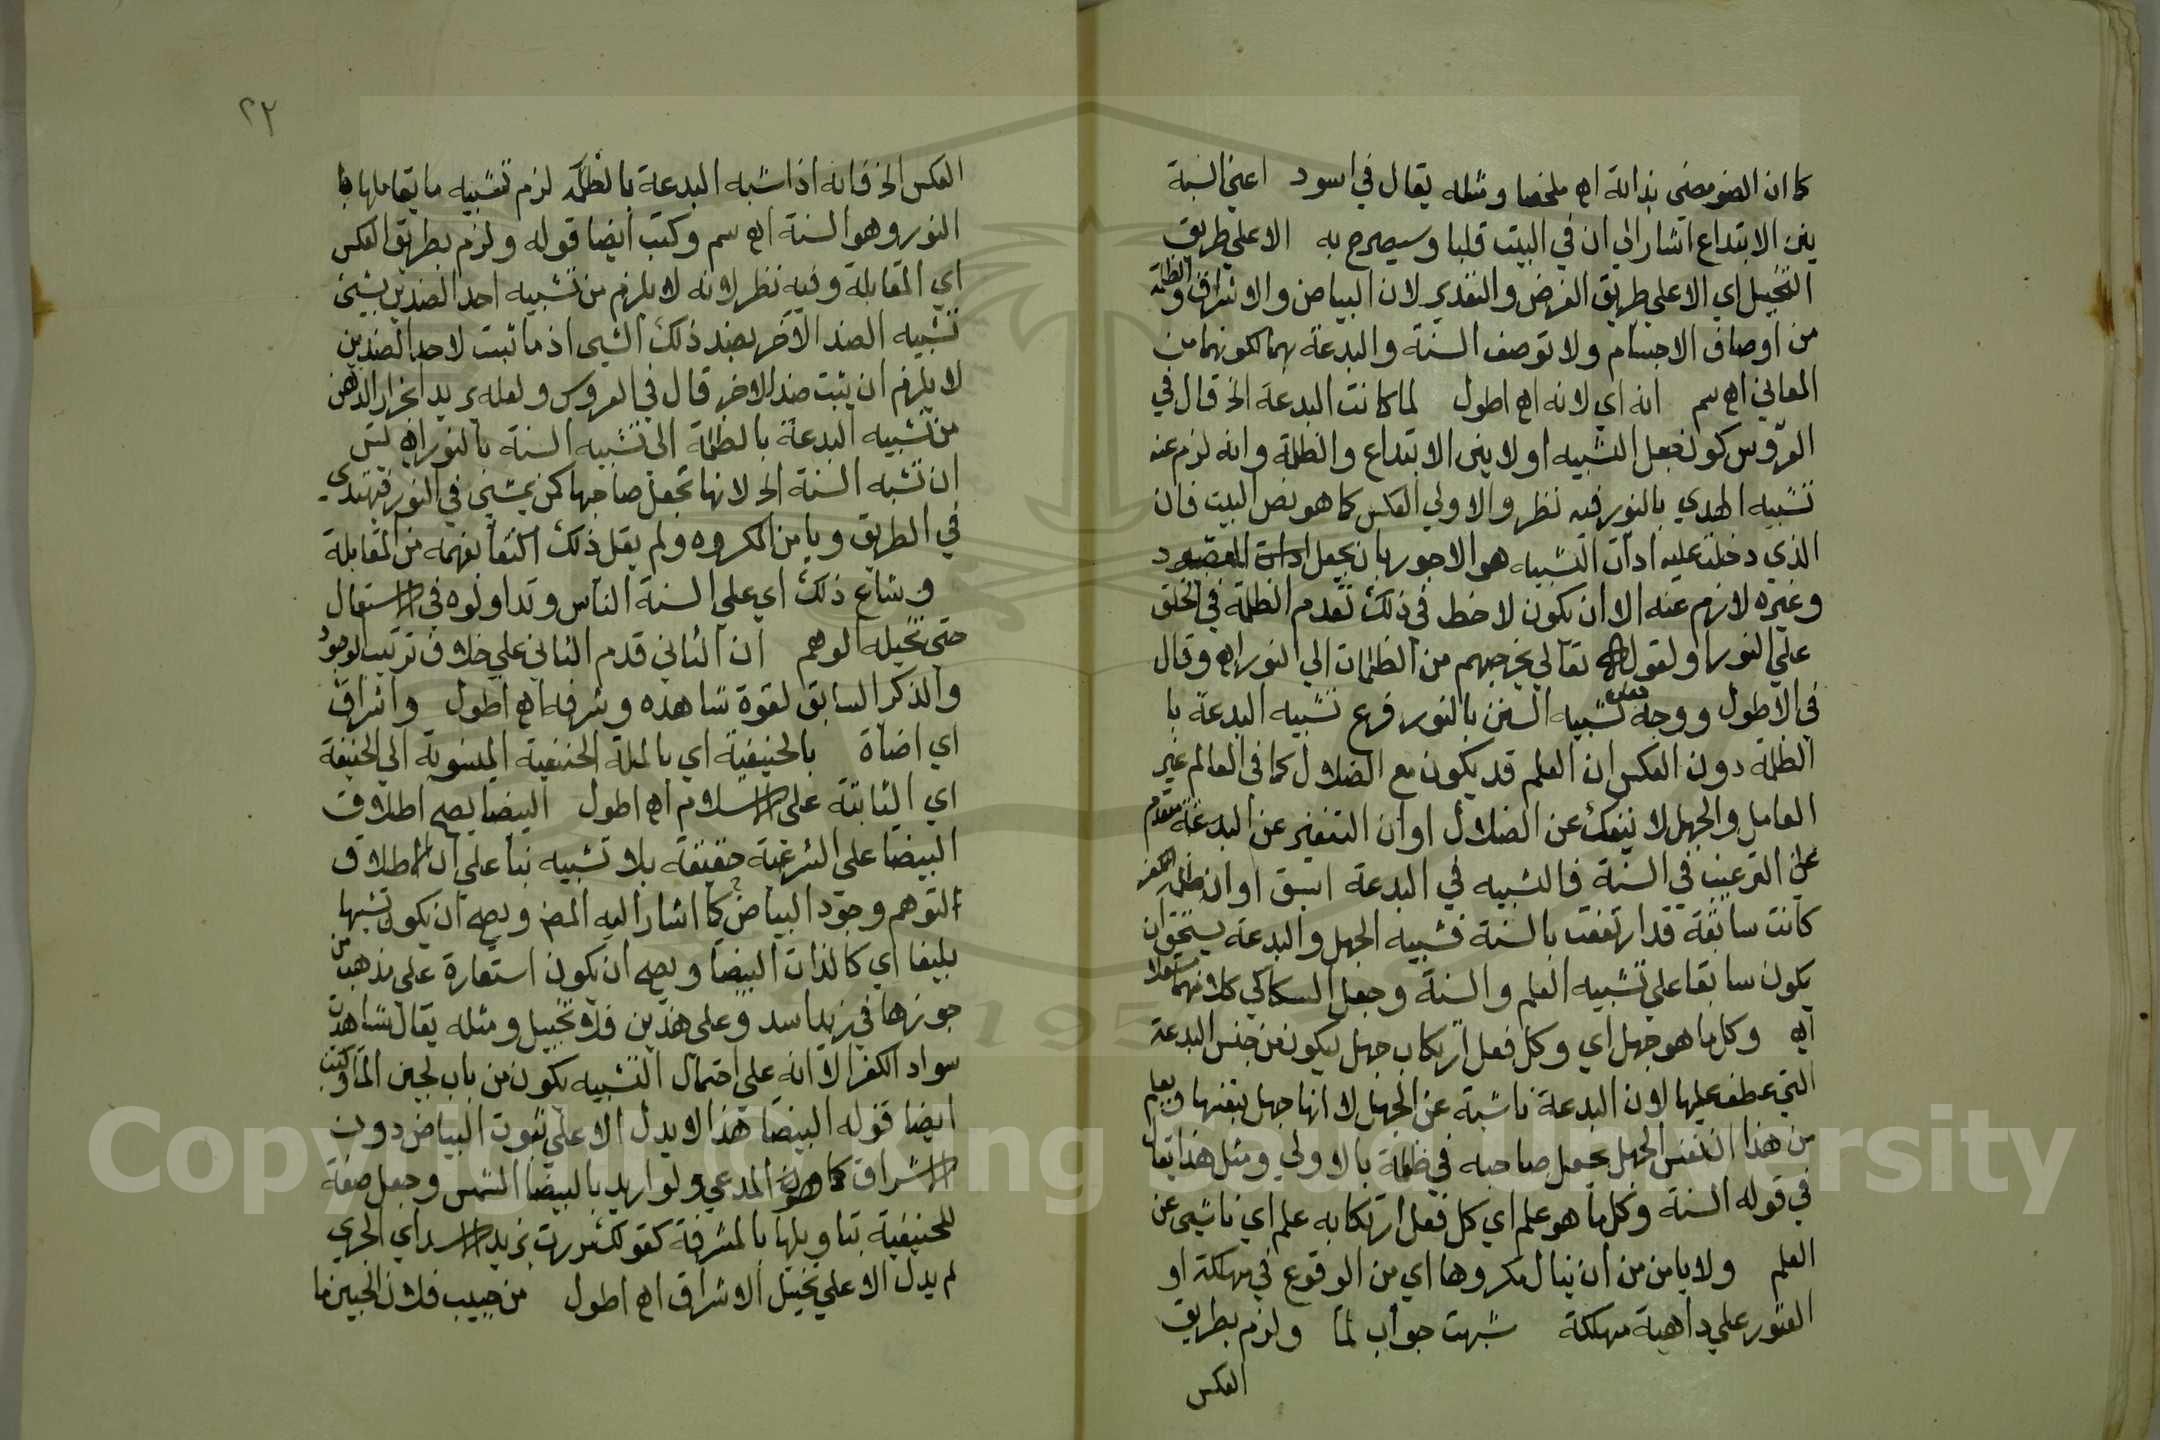 كما ان الضو مضى بذاته اه ملخصا ومثله يقال في اسود اعني السنة
بين الابتداع اشار الي ان في البيت قلبا وسيصرح به الا علي طريق
التخييل اي الا علي طريق الفرض والتقدير لان البياض والاشراق والظلمة
من اوصاف الاجسام ولا توصف السنة والبدعة بهما لكونهما من
المعاني اه سم انه اي لانه اه اطول لما كانت البدعة الخ قال في
العروس كونه جعل التشبيه اولا بين الابتداع والظلمة وانه لزم عنه
تشبيه الهدي بالنور فيه نظر والاولي العكس كما هو نص البيت فان
الذي دخلت عليه اداة التشبيه هو الاجدر بان يجعل المقصود
وغيره لازم عنه الا ان يكون لاحظ في ذلك تقدم الظلمة في الخلق
علي النور او لقوله تعالي يخرجهم من الظلمات الي النور اه وقال
في الاطول ووجه جعله تشبيه السنن بالنور فرع تشبيه البدعة با
الظلمة دون العكس ان العلم قد يكون مع الضلال كما في العالم غير
العامل والجهل لا ينفك عن الضلال او ان التنفير عن البدعة مقدم
علي الترغيب في السنة فالتشبيه في البدعة اسبق او ان ظلمة الكفر
كانت سابقة قد ارتفعت بالسنة فتشبيه الجهل والبدعة يستحق ان
يكون سابقا علي تشبيه العلم والسنة وجعل السكاكي كلا منهما مستقلا
اه وكل ما هو جهل اي وكل فعل ارتكاب جهل ليكون من جنس البدعة
التي عطف عليها لان البدعة ناشئة عن الجهل لا انها جهل بنفسها ويعلم
من هذا ان نفس الجهل يجعل صاحبه في ظلمة بالاولي ومثل هذا يقال
في قوله السنة وكل ما هو علم اي كل فعل ارتكابه علم اي ناشى عن
العلم ولا يامن من ان ينال مكروها اي من الوقوع في مهلكة او
العثور علي داهية مهلكة شبهت جواب لما ولزم بطريق
العكس
٢٢
العكس الخ فانه اذا شبه البدعة بالظلمة لزم تشبيه ما يقابلها با
النور وهو السنة اه سم وكتب ايضا قوله ولزم بطريق العكس
اي المقابلة وفيه نظر لانه لا يلزم من تشبيه احد الضدين بشيئ
تشبيه الضد الآخر بضد ذلك الشيئ اذ ما ثبت لاحد الضدين
لا يلزم ان يثبت ضده للاخر قال في العروس ولعله يريد انجرار الذهن
من تشبيه البدعة بالظلمة الي تشبيه السنة بالنور اه يس
ان تشبه السنة الخ لانها تجعل صاحبها كمن يمشي في النور فيهتدي
في الطريق ويامن المكروه ولم يقل ذلك اكتفا بفهمه من المقابلة
وشاع ذلك اي علي السنة الناس وتداولوه في الاستعمال
حتي تخيله الوهم ان الثاني قدم الثاني علي خلاف ترتيب الوجود
والذكر السابق لقوة شاهده وشرفه اه اطول واشراق
اي اضاة بالحنيفية اي بالملة الحنيفية المنسوبة الي الحنيفة
اي الثابتة علي الاسلام اه اطول البيضا يصح اطلاق
البيضا علي الشريعة حقيقة بلا تشبيه بنا علي ان الاطلاق
التوهم وجود البياض كما اشار اليه المص ويصح ان يكون تشبيها
بليغا اي كالذات البيضا ويصح ان يكون استعارة علي مذهب من
جوزها في زيد اسد وعلي هذين فلا تخييل ومثله يقال شاهدت
سواد الكفر الا انه علي احتمال التشبيه يكون من باب لجين الما وكتب
ايضا قوله البيضا هذا لا يدل الا علي ثبوت البياض دون
الاشراق كما هو المدعي ولو اريد بالبيضا الشمس وجعل صفة
للحنيفية بتاويلها بالمشرقة كقولك مررت بزيد الاسد اي الجري
لم يدل الا علي تخييل الاشراق اه اطول من جيب فلان الجبين ما
Copyright © King Saud University